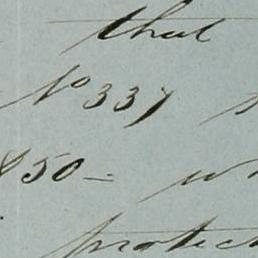 that
No 337
$50= wh
protec